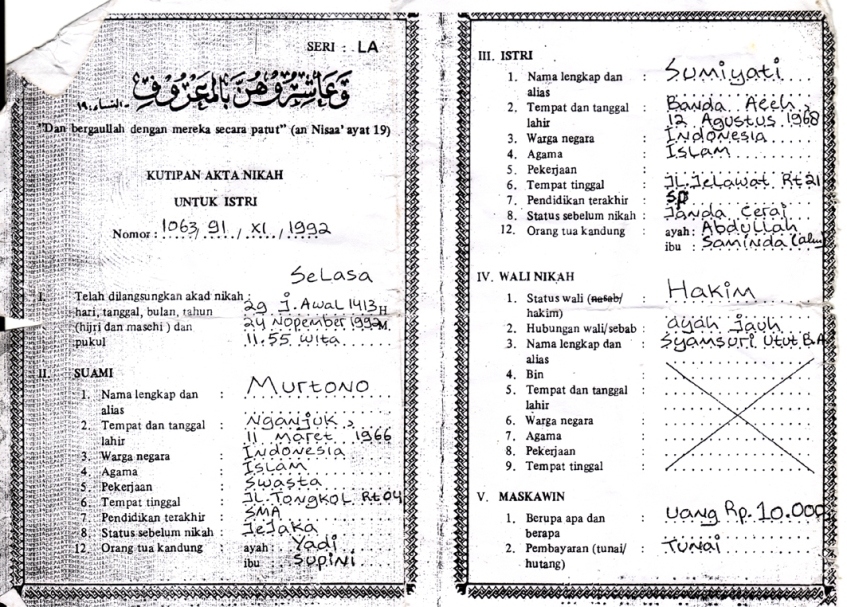 SERI : LA
وَعَاشِرُوهُنَّ بِالْمَعْرُوفِ - النساء ١٩
"Dan bergaullah dengan mereka secara patut" (an Nisaa' ayat 19)
KUTIPAN AKTA NIKAH
UNTUK ISTRI
Nomor : 1063, 91 / XI / 1992
Selasa
I. Telah dilangsungkan akad nikah :
hari, tanggal, bulan, tahun 29 J. Awal 1413 H
(hijri dan masehi ) dan 24 Nopember 1992 M.
pukul 11.55 wita
II. SUAMI
1. Nama lengkap dan : Murtono
alias
2. Tempat dan tanggal : Nganjuk,
lahir 11 Maret 1966
3. Warga negara : Indonesia
4. Agama : Islam
5. Pekerjaan : Swasta
6. Tempat tinggal : JL. Tongkol Rt 04
7. Pendidikan terakhir : SMA
8. Status sebelum nikah : Jejaka
12. Orang tua kandung : ayah : Yadi
ibu : Supini
III. ISTRI
1. Nama lengkap dan : Sumiyati
alias
2. Tempat dan tanggal : Banda Aceh,
lahir 12 Agustus 1968
3. Warga negara : Indonesia
4. Agama : Islam
5. Pekerjaan :
6. Tempat tinggal : JL. Jelawat Rt 21
7. Pendidikan terakhir : SD
8. Status sebelum nikah : Janda cerai
12. Orang tua kandung : ayah : Abdullah
ibu : Saminda (alm)
IV. WALI NIKAH
1. Status wali (nasab/ : Hakim
hakim)
2. Hubungan wali/sebab : ayah jauh
3. Nama lengkap dan : Syamsuri Utut B.A
alias
4. Bin :
5. Tempat dan tanggal :
lahir
6. Warga negara :
7. Agama :
8. Pekerjaan :
9. Tempat tinggal :
V. MASKAWIN
1. Berupa apa dan : Uang Rp. 10.000,
berapa
2. Pembayaran (tunai/ : Tunai
hutang)